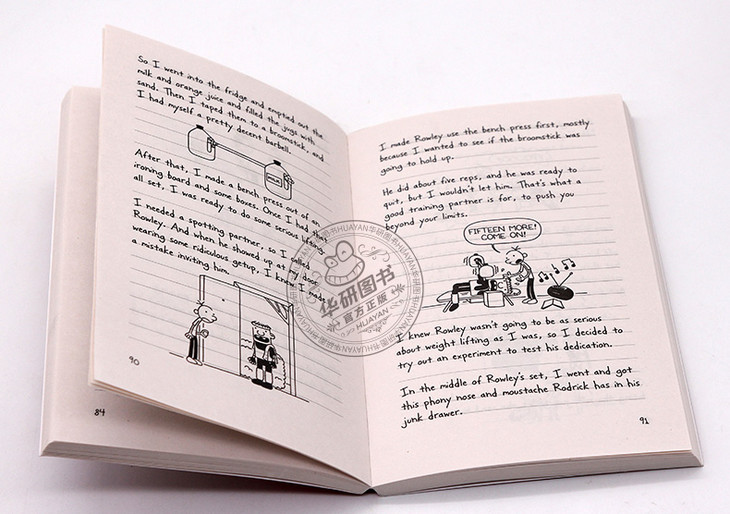 So I went into the fridge and emptied out the
milk and orange juice and filled the jugs with
sand. Then I taped them to a broomstick, and
I had myself a pretty decent barbell.
MILK
After that, I made a bench press out of an
ironing board and some boxes. Once I had that
all set, I was ready to do some serious lifting.
I needed a spotting partner, so I called
Rowley. And when he showed up at my door
wearing some ridiculous getup, I knew I made
a mistake inviting him.
90
84
I made Rowley use the bench press first, mostly
because I wanted to see if the broomstick was
going to hold up.
He did about five reps, and he was ready to
quit, but I wouldn't let him. That's what a
good training partner is for, to push you
beyond your limits.
FIFTEEN MORE!
COME ON!
I knew Rowley wasn't going to be as serious
about weight lifting as I was, so I decided to
try out an experiment to test his dedication.
In the middle of Rowley's set, I went and got
this phony nose and moustache Rodrick has in his
junk drawer.
91
华研图书
官方正版
HUAYAN